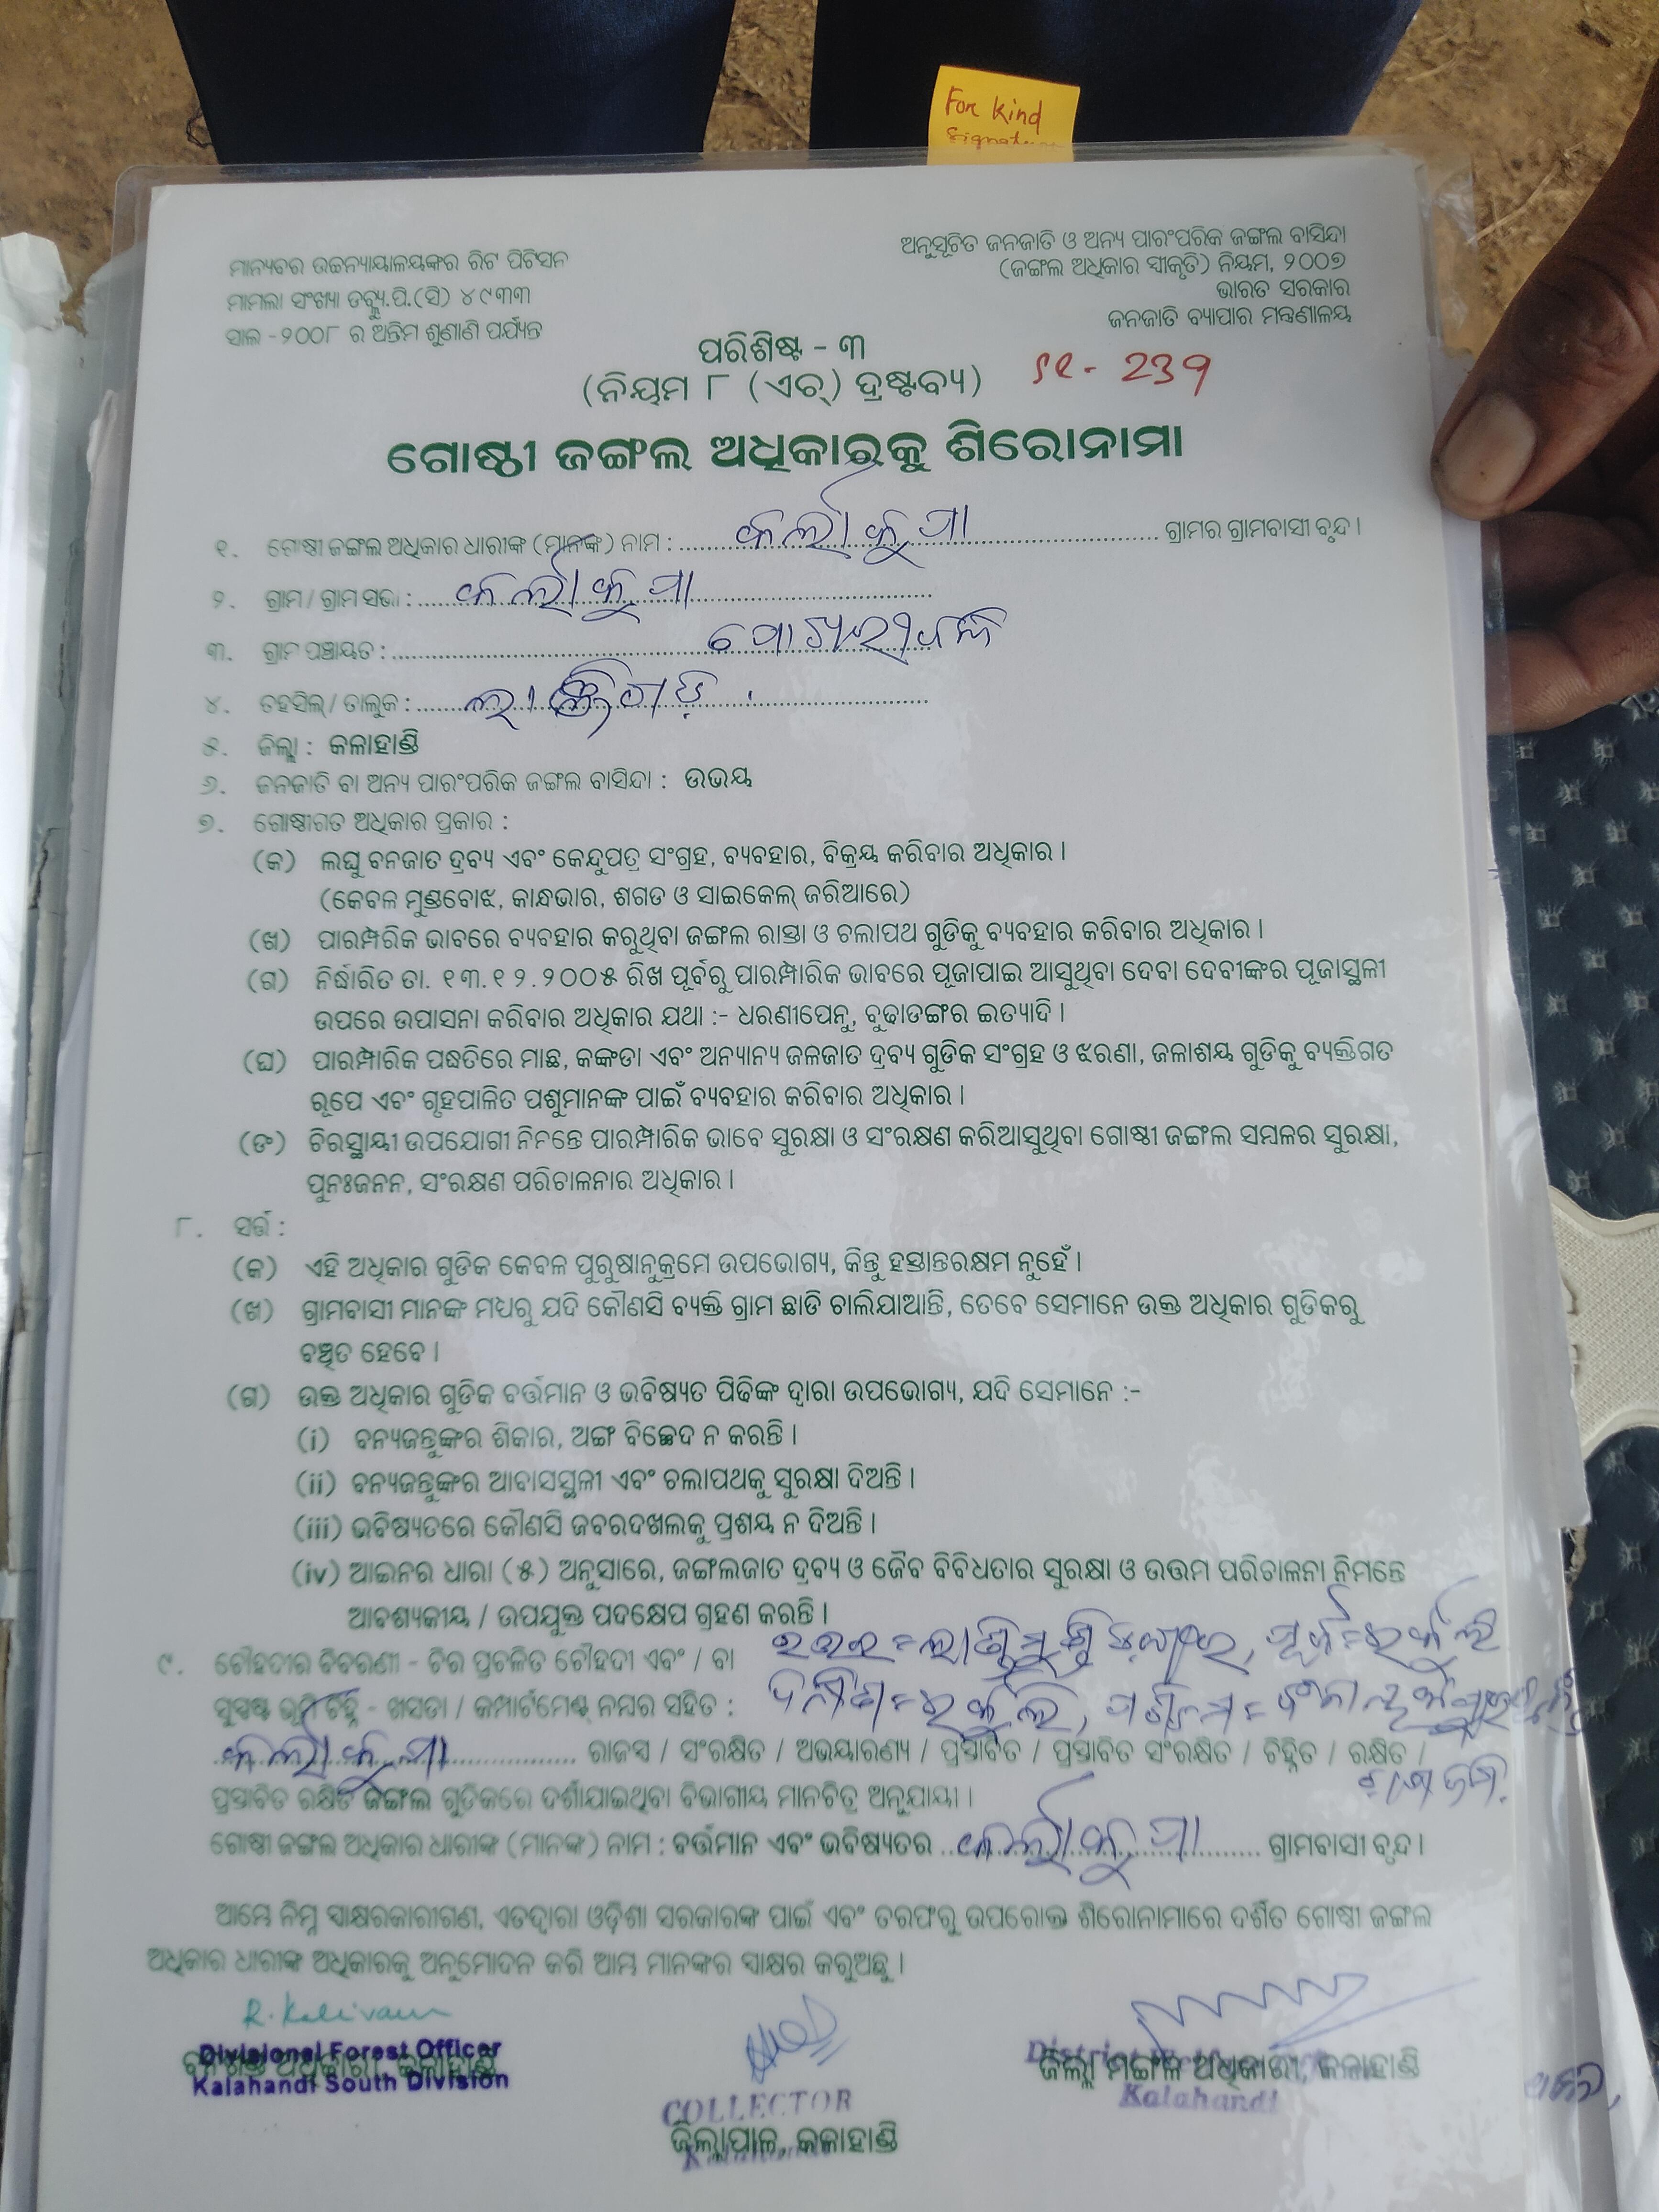 For kind
ମାନ୍ୟବର ଉଚ୍ଚନ୍ୟାୟାଳୟଙ୍କର ରିଟ ପିଟିସନ
ମାମଲା ସଂଖ୍ୟା ଡବ୍ଲ୍ୟୁ.ପି.(ସି) ୪୯୩୩
ସାଲ -୨୦୦୮ ର ଅନ୍ତିମ ଶୁଣାଣି ପର୍ଯ୍ୟନ୍ତ
ଅନୁସୂଚିତ ଜନଜାତି ଓ ଅନ୍ୟ ପାରଂପରିକ ଜଙ୍ଗଲ ବାସିନ୍ଦା
(ଜଙ୍ଗଲ ଅଧିକାର ସ୍ୱୀକୃତି) ନିୟମ, ୨୦୦୭
ଭାରତ ସରକାର
ଜନଜାତି ବ୍ୟାପାର ମନ୍ତ୍ରଣାଳୟ
ପରିଶିଷ୍ଟ - ୩
(ନିୟମ ୮ (ଏଚ୍) ଦ୍ରଷ୍ଟବ୍ୟ)
ଗୋଷ୍ଠୀ ଜଙ୍ଗଲ ଅଧିକାରକୁ ଶିରୋନାମା
୧. ଗୋଷ୍ଠୀ ଜଙ୍ଗଲ ଅଧିକାର ଧାରୀଙ୍କ (ମାନଙ୍କ) ନାମ : ଗ୍ରାମର ଗ୍ରାମବାସୀ ବୃନ୍ଦ ।
୨. ଗ୍ରାମ / ଗ୍ରାମ ସଭା :
୩. ଗ୍ରାମ ପଞ୍ଚାୟତ :
୪. ତହସିଲ୍ / ତାଲୁକ : ଲାଞ୍ଜିଗଡ଼
୫. ଜିଲ୍ଲା : କଳାହାଣ୍ଡି
୬. ଜନଜାତି ବା ଅନ୍ୟ ପାରଂପରିକ ଜଙ୍ଗଲ ବାସିନ୍ଦା : ଉଭୟ
୭. ଗୋଷ୍ଠୀଗତ ଅଧିକାର ପ୍ରକାର :
(କ) ଲଘୁ ବନଜାତ ଦ୍ରବ୍ୟ ଏବଂ କେନ୍ଦୁପତ୍ର ସଂଗ୍ରହ, ବ୍ୟବହାର, ବିକ୍ରୟ କରିବାର ଅଧିକାର ।
(କେବଳ ମୁଣ୍ଡବୋଝ, କାନ୍ଧଭାର, ଶଗଡ ଓ ସାଇକେଲ୍ ଜରିଆରେ)
(ଖ) ପାରମ୍ପରିକ ଭାବରେ ବ୍ୟବହାର କରୁଥିବା ଜଙ୍ଗଲ ରାସ୍ତା ଓ ଚଲାପଥ ଗୁଡିକୁ ବ୍ୟବହାର କରିବାର ଅଧିକାର ।
(ଗ) ନିର୍ଦ୍ଧାରିତ ତା. ୧୩.୧୨.୨୦୦୫ ରିଖ ପୂର୍ବରୁ ପାରମ୍ପାରିକ ଭାବରେ ପୂଜାପାଇ ଆସୁଥିବା ଦେବା ଦେବୀଙ୍କର ପୂଜାସ୍ଥଳୀ
ଉପରେ ଉପାସନା କରିବାର ଅଧିକାର ଯଥା :- ଧରଣୀପେନୁ, ବୁଢାଡଙ୍ଗର ଇତ୍ୟାଦି ।
(ଘ) ପାରମ୍ପାରିକ ପଦ୍ଧତିରେ ମାଛ, କଙ୍କଡା ଏବଂ ଅନ୍ୟାନ୍ୟ ଜଳଜାତ ଦ୍ରବ୍ୟ ଗୁଡିକ ସଂଗ୍ରହ ଓ ଝରଣା, ଜଳାଶୟ ଗୁଡିକୁ ବ୍ୟକ୍ତିଗତ
ରୂପେ ଏବଂ ଗୃହପାଳିତ ପଶୁମାନଙ୍କ ପାଇଁ ବ୍ୟବହାର କରିବାର ଅଧିକାର ।
(ଙ) ଚିରସ୍ଥାୟୀ ଉପଯୋଗୀ ନିମନ୍ତେ ପାରମ୍ପାରିକ ଭାବେ ସୁରକ୍ଷା ଓ ସଂରକ୍ଷଣ କରିଆସୁଥିବା ଗୋଷ୍ଠୀ ଜଙ୍ଗଲ ସମ୍ବଳର ସୁରକ୍ଷା,
ପୁନଃଜନନ, ସଂରକ୍ଷଣ ପରିଚାଳନାର ଅଧିକାର ।
୮. ସର୍ତ୍ତ :
(କ) ଏହି ଅଧିକାର ଗୁଡିକ କେବଳ ପୁରୁଷାନୁକ୍ରମେ ଉପଭୋଗ୍ୟ, କିନ୍ତୁ ହସ୍ତାନ୍ତରକ୍ଷମ ନୁହେଁ ।
(ଖ) ଗ୍ରାମବାସୀ ମାନଙ୍କ ମଧ୍ୟରୁ ଯଦି କୌଣସି ବ୍ୟକ୍ତି ଗ୍ରାମ ଛାଡି ଚାଲିଯାଆନ୍ତି, ତେବେ ସେମାନେ ଉକ୍ତ ଅଧିକାର ଗୁଡିକରୁ
ବଞ୍ଚିତ ହେବେ ।
(ଗ) ଉକ୍ତ ଅଧିକାର ଗୁଡିକ ବର୍ତ୍ତମାନ ଓ ଭବିଷ୍ୟତ ପିଢିଙ୍କ ଦ୍ୱାରା ଉପଭୋଗ୍ୟ, ଯଦି ସେମାନେ :-
(i) ବନ୍ୟଜନ୍ତୁଙ୍କର ଶିକାର, ଅଙ୍ଗ ବିଚ୍ଛେଦ ନ କରନ୍ତି ।
(ii) ବନ୍ୟଜନ୍ତୁଙ୍କର ଆବାସସ୍ଥଳୀ ଏବଂ ଚଲାପଥକୁ ସୁରକ୍ଷା ଦିଅନ୍ତି ।
(iii) ଭବିଷ୍ୟତରେ କୌଣସି ଜବରଦଖଲକୁ ପ୍ରଶୟ ନ ଦିଅନ୍ତି ।
(iv) ଆଇନର ଧାରା (୫) ଅନୁସାରେ, ଜଙ୍ଗଲଜାତ ଦ୍ରବ୍ୟ ଓ ଜୈବ ବିବିଧତାର ସୁରକ୍ଷା ଓ ଉତ୍ତମ ପରିଚାଳନା ନିମନ୍ତେ
ଆବଶ୍ୟକୀୟ / ଉପଯୁକ୍ତ ପଦକ୍ଷେପ ଗ୍ରହଣ କରନ୍ତି ।
୯. ଚୌହଦୀର ବିବରଣୀ - ଚିର ପ୍ରଚଳିତ ଚୌହଦୀ ଏବଂ / ବା
ସୁସ୍ପଷ୍ଟ ଭୂମି ଚିହ୍ନ - ଖସଡା / କମ୍ପାର୍ଟମେଣ୍ଟ୍ ନମ୍ବର ସହିତ :
ରାଜସ୍ୱ / ସଂରକ୍ଷିତ / ଅଭୟାରଣ୍ୟ / ପ୍ରସ୍ତାବିତ / ପ୍ରସ୍ତାବିତ ସଂରକ୍ଷିତ / ଚିହ୍ନିତ / ରକ୍ଷିତ /
ପ୍ରସ୍ତାବିତ ରକ୍ଷିତ ଜଙ୍ଗଲ ଗୁଡିକରେ ଦର୍ଶାଯାଇଥିବା ବିଭାଗୀୟ ମାନଚିତ୍ର ଅନୁଯାୟୀ ।
ଗୋଷ୍ଠୀ ଜଙ୍ଗଲ ଅଧିକାର ଧାରୀଙ୍କ (ମାନଙ୍କ) ନାମ : ବର୍ତ୍ତମାନ ଏବଂ ଭବିଷ୍ୟତର ଗ୍ରାମବାସୀ ବୃନ୍ଦ ।
ଆମ୍ଭେ ନିମ୍ନ ସାକ୍ଷରକାରୀଗଣ, ଏତଦ୍ୱାରା ଓଡ଼ିଶା ସରକାରଙ୍କ ପାଇଁ ଏବଂ ତରଫରୁ ଉପରୋକ୍ତ ଶିରୋନାମାରେ ଦର୍ଶିତ ଗୋଷ୍ଠୀ ଜଙ୍ଗଲ
ଅଧିକାର ଧାରୀଙ୍କ ଅଧିକାରକୁ ଅନୁମୋଦନ କରି ଆମ୍ଭ ମାନଙ୍କର ସ୍ୱାକ୍ଷର କରୁଅଛୁ ।
Divisional Forest Officer
ବନଖଣ୍ଡ ଅଧିକାରୀ, କଳାହାଣ୍ଡି
Kalahandi South Division
ଜିଲ୍ଲା ମଙ୍ଗଳ ଅଧିକାରୀ, କଳାହାଣ୍ଡି
Kalahandi
COLLECTOR
ଜିଲ୍ଲାପାଳ, କଳାହାଣ୍ଡି